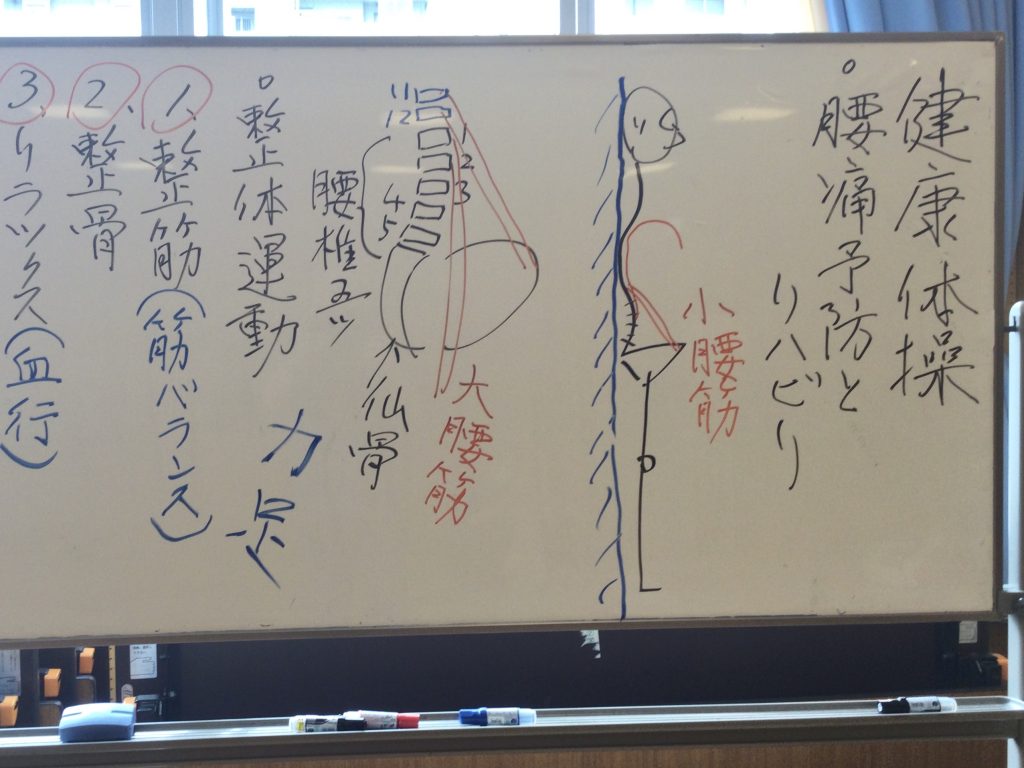 健康体操
○腰痛予防と
リハビリ
小腰筋
大腰筋
11
12
1
2
3
4
5
仙骨
腰椎五ツ
○整体運動
1、整筋(筋バランス)
2、整骨
3、リラックス(血行)